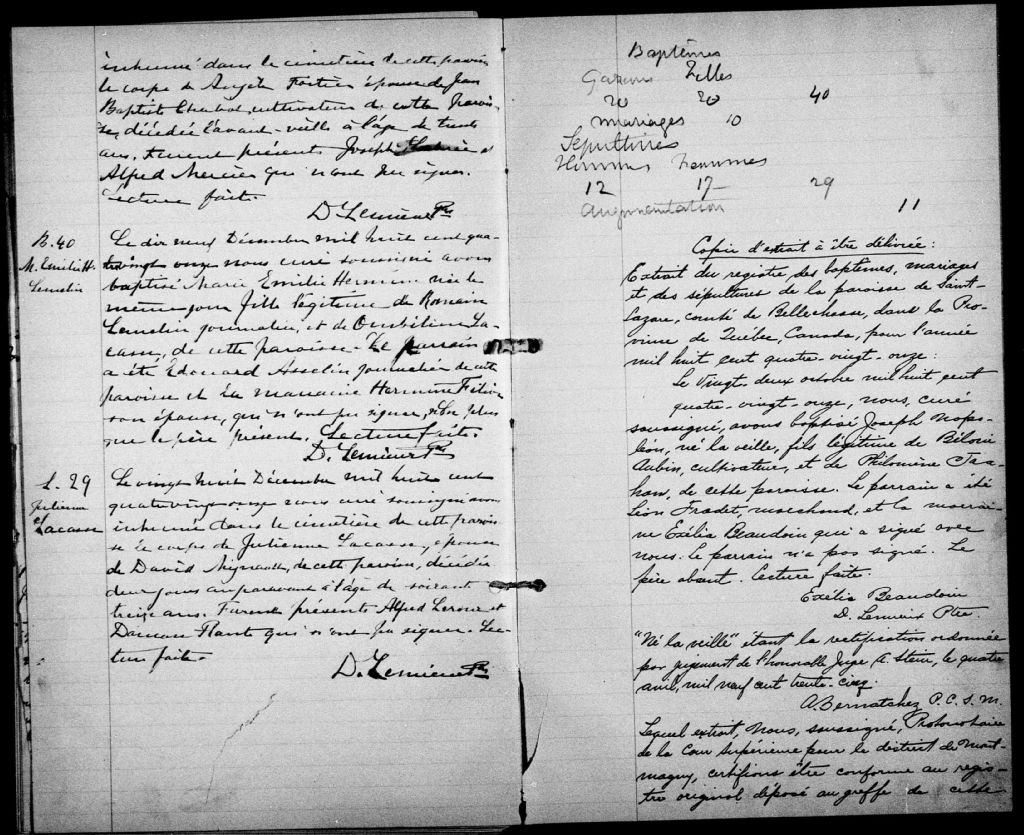 inhumé dans le cimetière de cette paroisse
le corps de Angèle Fortier épouse de Jean
Baptiste Chabot, cultivateur de cette parois-
se, décédée l'avant-veille à l'âge de trente
ans. Furent présents Joseph et
Alfred Mercier qui n'ont su signer.
Lecture faite.
D. Lemieux Ptre
B. 40
M. Emilie H.
Lemelin
Le dix neuf Décembre mil huit cent qua-
trevingt onze nous curé soussigné avons
baptisé Marie Emilie Hermine née le
même jour fille légitime de Romain
Lemelin journalier, et de Ombéline La-
casse, de cette paroisse. Le parrain
a été Edouard Asselin journalier de cette
paroisse et la marraine Hermine
son épouse, qui n'ont pu signer, non plus
que le père présent. Lecture faite.
D. Lemieux Ptre
S. 29
Julienne
Lacasse
Le vingt huit Décembre mil huit cent
quatrevingt onze nous curé soussigné avons
inhumé dans le cimetière de cette parois-
se le corps de Julienne Lacasse, épouse
de David Mignault, de cette paroisse, décédée
deux jours auparavant à l'âge de soixante
treize ans. Furent présents Alfred Leroux et
Damase Plante qui n'ont pu signer. Lec-
ture faite.
D. Lemieux Ptre
Baptêmes
Garçons Filles
20 20 40
Mariages 10
Sépultures
Hommes Femmes
12 17 29
Augmentation 11
Copie d'extrait à être délivrée:
Extrait du registre des baptêmes, mariages
et des sépultures de la paroisse de Saint-
Lazare, comté de Bellechasse, dans la Pro-
vince de Québec, Canada, pour l'année
mil huit cent quatre-vingt-onze:
Le Vingt deux octobre mil huit cent
quatre-vingt-onze, nous, curé
soussigné, avons baptisé Joseph Napo-
léon, né la veille, fils légitime de Béloni
Aubin, cultivateur, et de Philomène Tan-
han, de cette paroisse. Le parrain a été
Léon Fradet, marchand, et la marrai-
ne Exélia Beaudoin qui a signé avec
nous. le parrain n'a pas signé. Le
père absent. Lecture faite.
Exélia Beaudoin
D. Lemieux Ptre.
"Né la veille" étant la rectification ordonnée
par jugement de l'honorable Juge A. Stein, le quatre
avril, mil neuf cent trente-cinq.
A. Bernatchez P.C.S.M.
Lequel extrait, Nous, soussigné, Protonotaire
de la Cour Supérieure pour le district de Mont-
magny, certifions être conforme au regis-
tre original déposé au greffe de cette